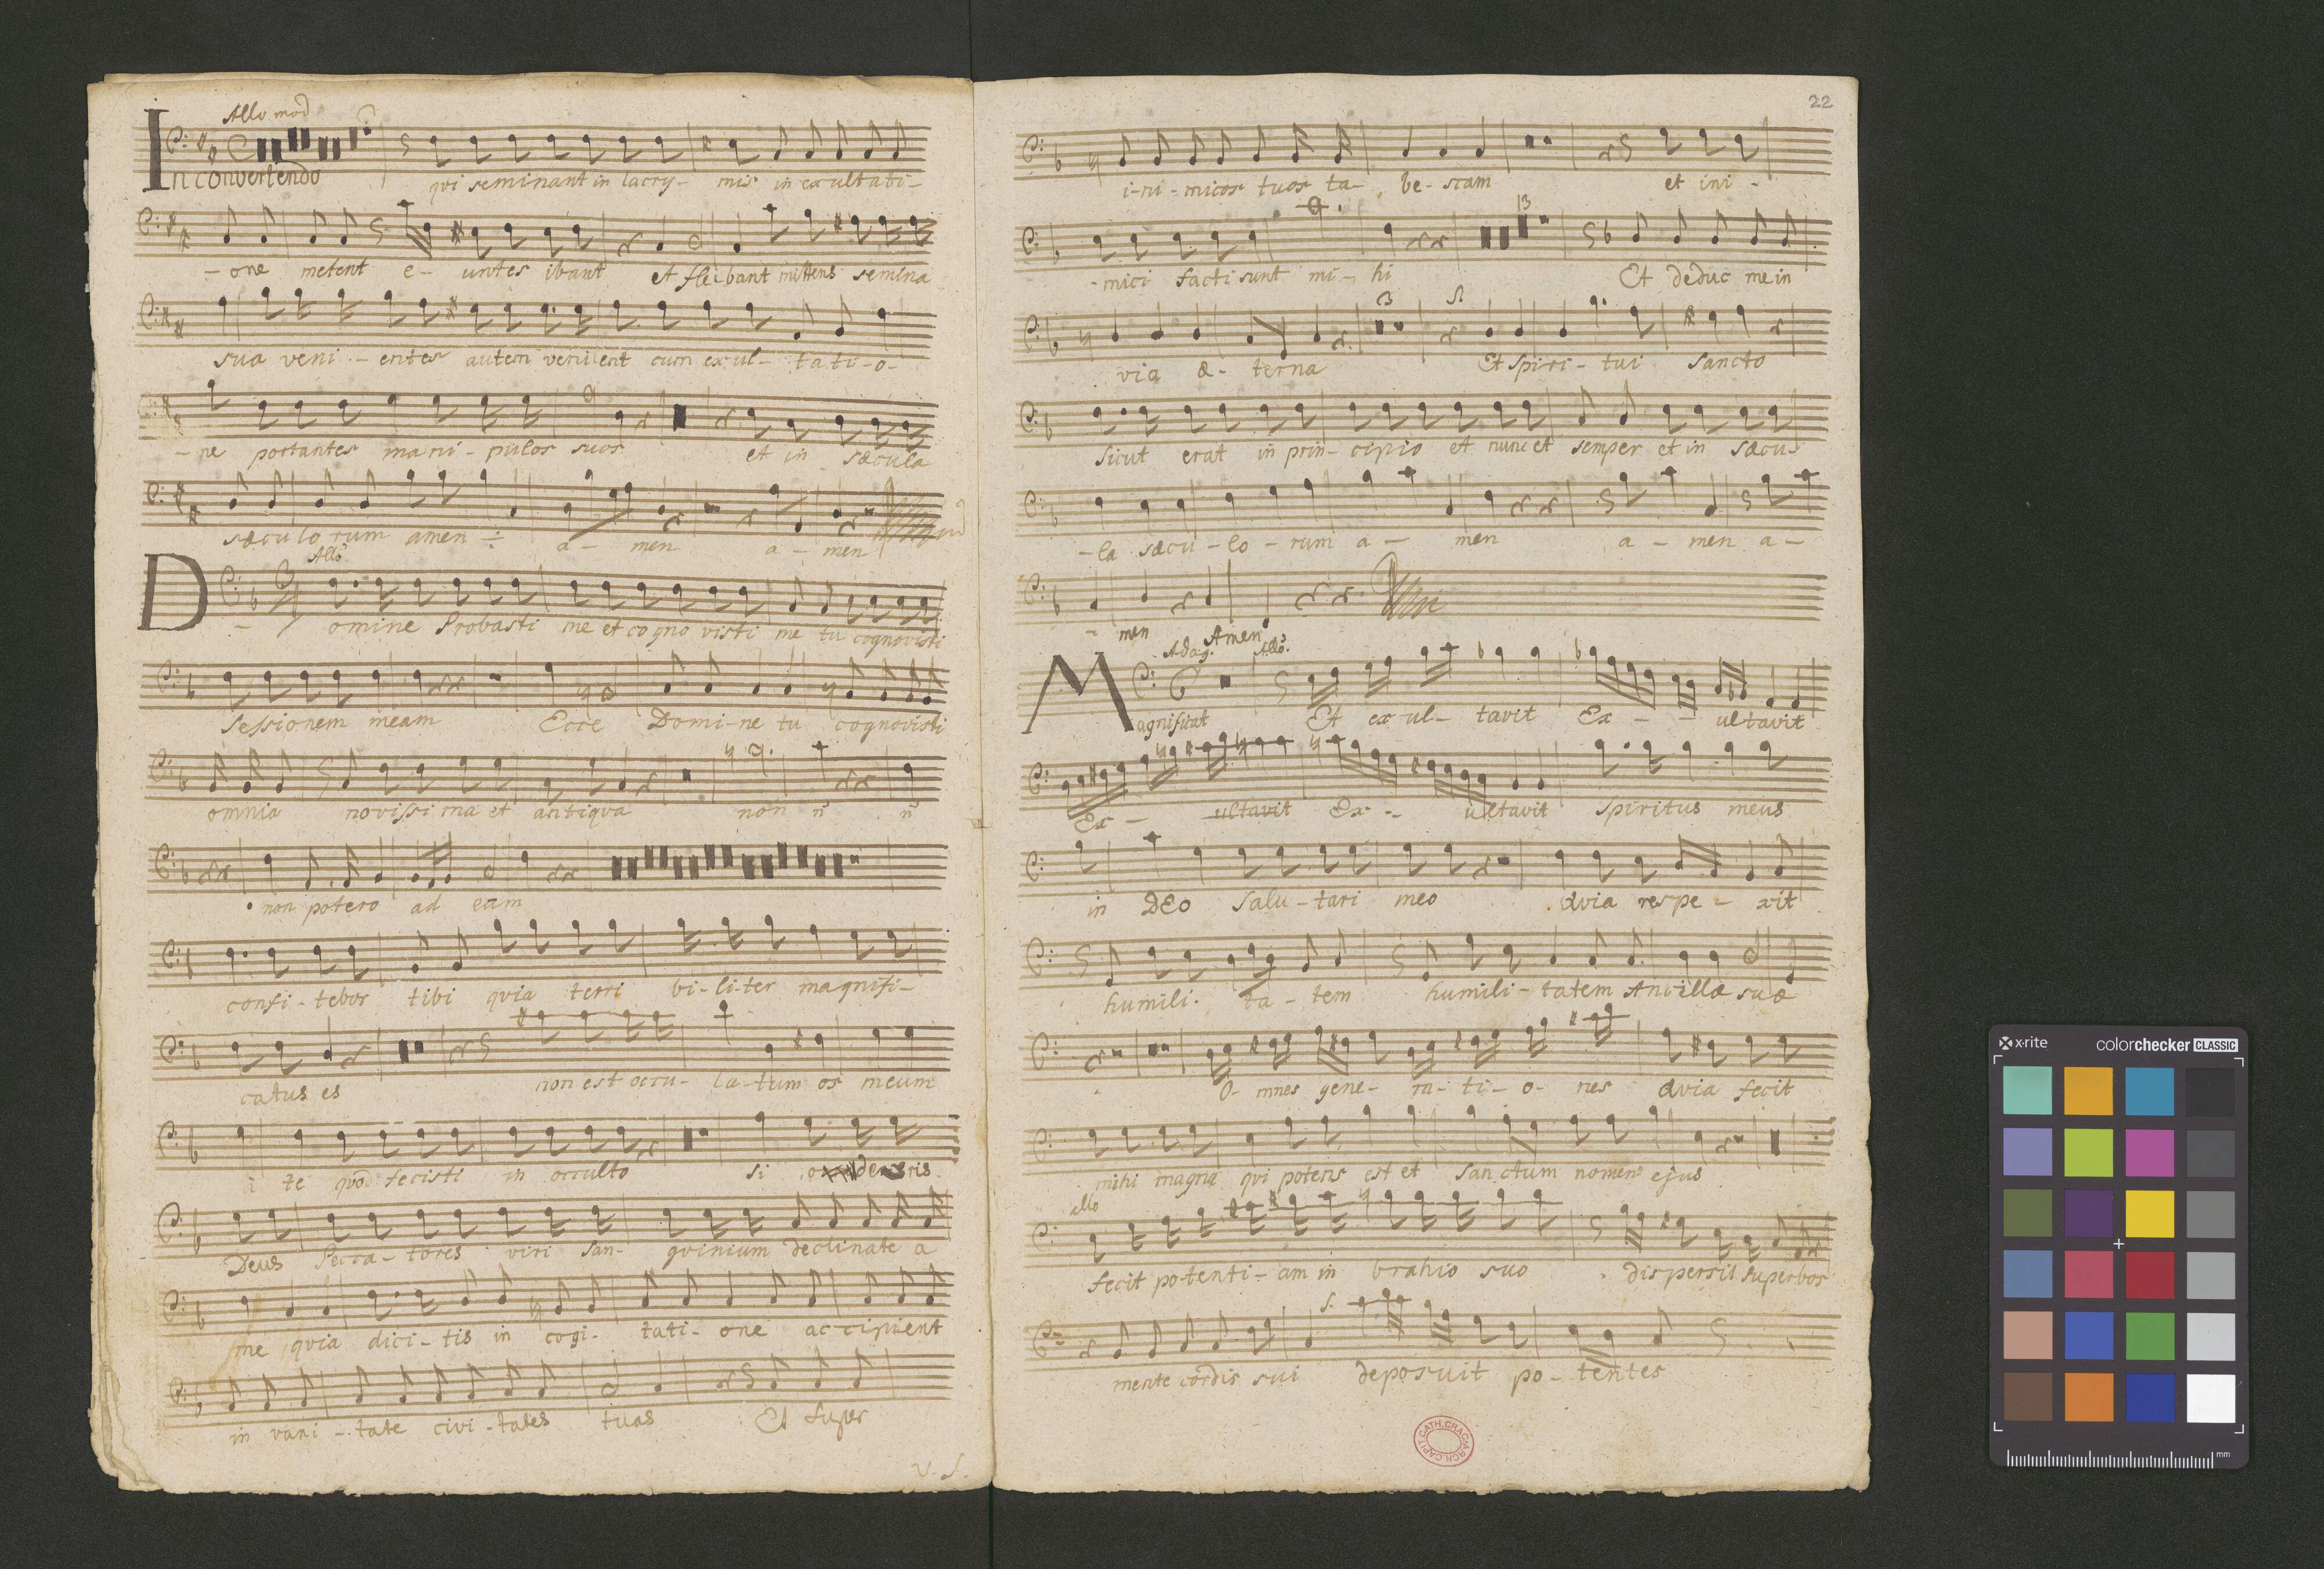 Allo mod
In convertendo qui seminant in lacry- mis in exultati-
- one metent e- untes ibant et flebant mittens semina
sua veni - entes autem venient cum exul- tati-o-
- ne portantes mani- pulos suos et in sæcula
sæculorum amen ÷ a - men a - men
Allo
Domine Probasti me et cogno visti me tu cognovisti
Sessionem meam Ecce Domi-ne tu cognovisti
omnia novissi ma et antiqua non
non potero ad eam
confi- tebor tibi quia terri bi-li-ter magnifi-
catus es non est occu- la-tum os meum
te quod fecisti in occulto si
Deus Pecca-tores viri san- guinium declinate a
me quia dici-tis in cogi- tati- one accipient
in vani-tate civi-tates tuas Et super
V. S.
22
i-ni-micos tuos ta- be-scam et ini -
13
- mici facti sunt mi- hi Et deduc me in
via æ- terna Et Spiri- tui Sancto
sicut erat in prin- cipio et nunc et semper et in sæcu-
-la sæcu-lo-rum a- men a - men a-
- men Amen
Adag. Allo.
Magnificat Et ex ul- tavit Ex - - ultavit
Ex - ultavit Ex - - ultavit Spiritus meus
in DEo Salu-tari meo Qvia respe - xit
humili- ta-tem humili-tatem Ancillæ suæ
O- mnes gene- ra-ti-o- nes Qvia fecit
mihi magna qui potens est et San ctum nomen ejus
allo
fecit potenti- am in brahio suo dispersit superbos
mente cordis sui deposuit po- tentes
CAPIT.CATH.CRAC.ARCH.
x-rite
colorchecker CLASSIC
mm